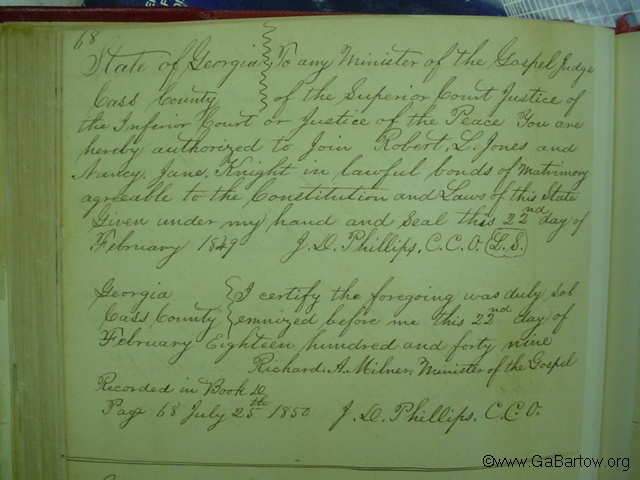 68
State of Georgia } To any Minister of the Gospel Judge
Cass County } of the Superior Court Justice of
the Inferior Court or Justice of the Peace You are
hereby authorized to Join Robert. L. Jones and
Nancy. Jane. Knight in lawful bonds of Matrimony
agreeable to the Constitution and Laws of this State
Given under my hand and Seal this 22nd day of
February 1849 J. D. Phillips, C.C.O. L.S.
Georgia } I certify the foregoing was duly sol
Cass County } emnized before me this 22nd day of
February Eighteen hundred and forty nine
Richard. A. Milner, Minister of the Gospel
Recorded in Book D
Page 68 July 25th 1850 J. D. Phillips. C.C.O.
©www.GaBartow.org